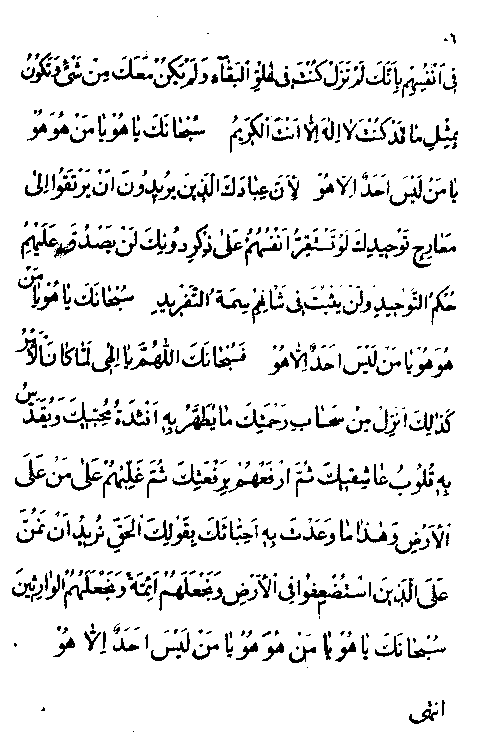 ٠٦
فى اَنْفُسِهِم بِاَنَّكَ لَمْ تَزَلْ كُنْتَ فى عُلُوِّ البَقَآءِ وَلَمْ يَكُنْ مَعَكَ مِنْ شَئٍ وَتَكُوْنُ
بِمِثْلِ ما قَدْ كُنْتَ لا اِلهَ اِلّا اَنْتَ الكَريمُ سُبْحانَكَ يا هُوَ يا مَنْ هُوَ هُوَ
يا مَنْ لَيْسَ اَحَدٌ اِلّا هُوَ لِاَنَّ عِبادَكَ الَّذينَ يُريدُونَ اَنْ يَرْتَقُوا اِلى
مَعارِجِ تَوْحيدِكَ لَوْ تَسْتَقِرُّ اَنْفُسُهُمْ عَلى ذِكْرِ دُونِكَ لَنْ يَصْدُقَ عَلَيْهِمْ
حُكْمُ التَّوْحيدِ وَلَنْ يَثْبُتَ فى شَأنِهِمْ سِمَةُ التَّفْريدِ سُبْحانَكَ يا هُوَ يا مَنْ
هُوَ هُوَ يا مَنْ لَيْسَ اَحَدٌ اِلّا هُوَ فَسُبْحانَكَ اللّهُمَّ يا اِلهى لَمّا كانَ الْاَمْرُ
كَذلِكَ اَنْزِلْ مِنْ سَحابِ رَحْمَتِكَ ما يَطْهُرُ بِهِ اَفْئِدَةُ مُحِبّيكَ وَيُقَدَّسُ
بِهِ قُلُوبُ عاشِقيكَ ثُمَّ ارْفَعْهُمْ بِرِفْعَتِكَ ثُمَّ غَلِّبْهُمْ عَلى مَنْ عَلَى
الْاَرْضِ وَهذا ما وَعَدْتَ بِهِ اَحِبّائَكَ بِقَوْلِكَ الْحَقِّ نُريدُ اَنْ نَمُنَّ
عَلَى الَّذينَ اسْتُضْعِفُوا فِى الْاَرْضِ وَنَجْعَلَهُمْ اَئِمَّةً وَنَجْعَلَهُمُ الْوارِثينَ
سُبْحانَكَ يا هُوَ يا مَنْ هُوَ هُوَ يا مَنْ لَيْسَ اَحَدٌ اِلّا هُوَ
انتهى